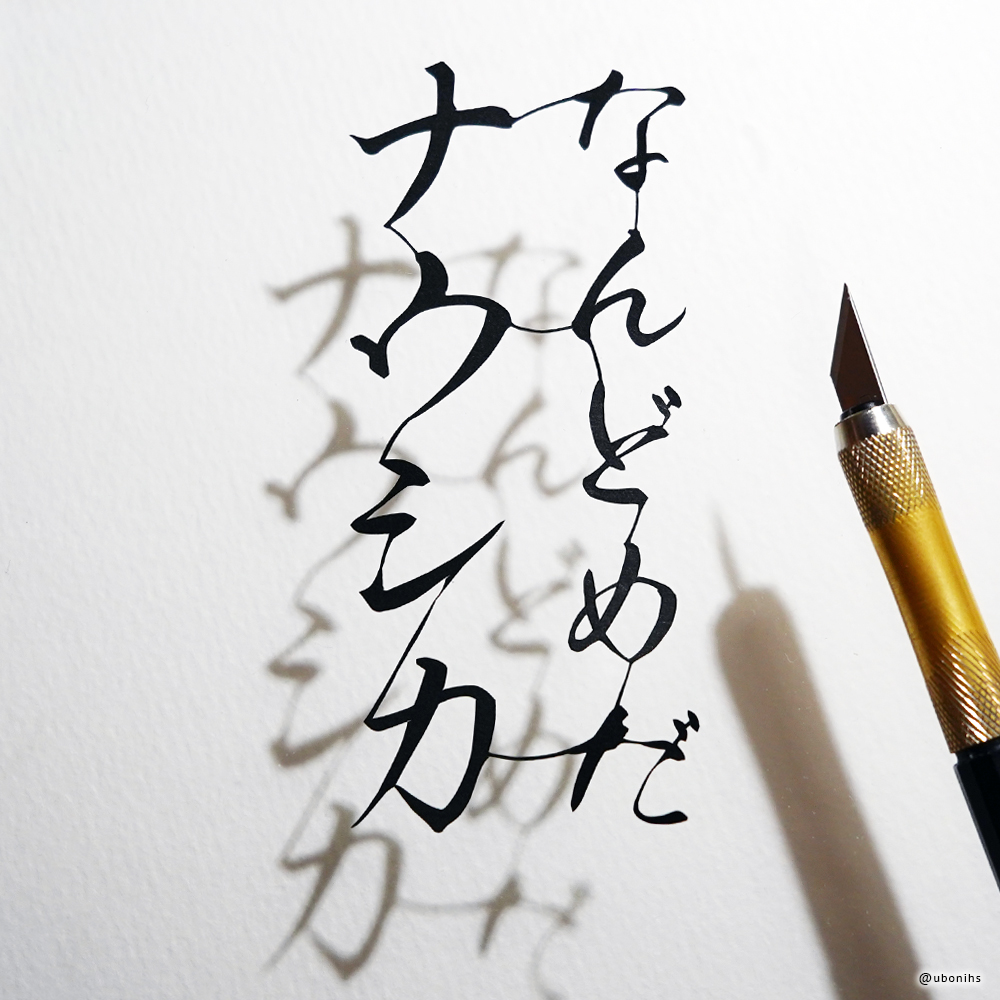 なんどめだ
ナウシカ
@ubonihs